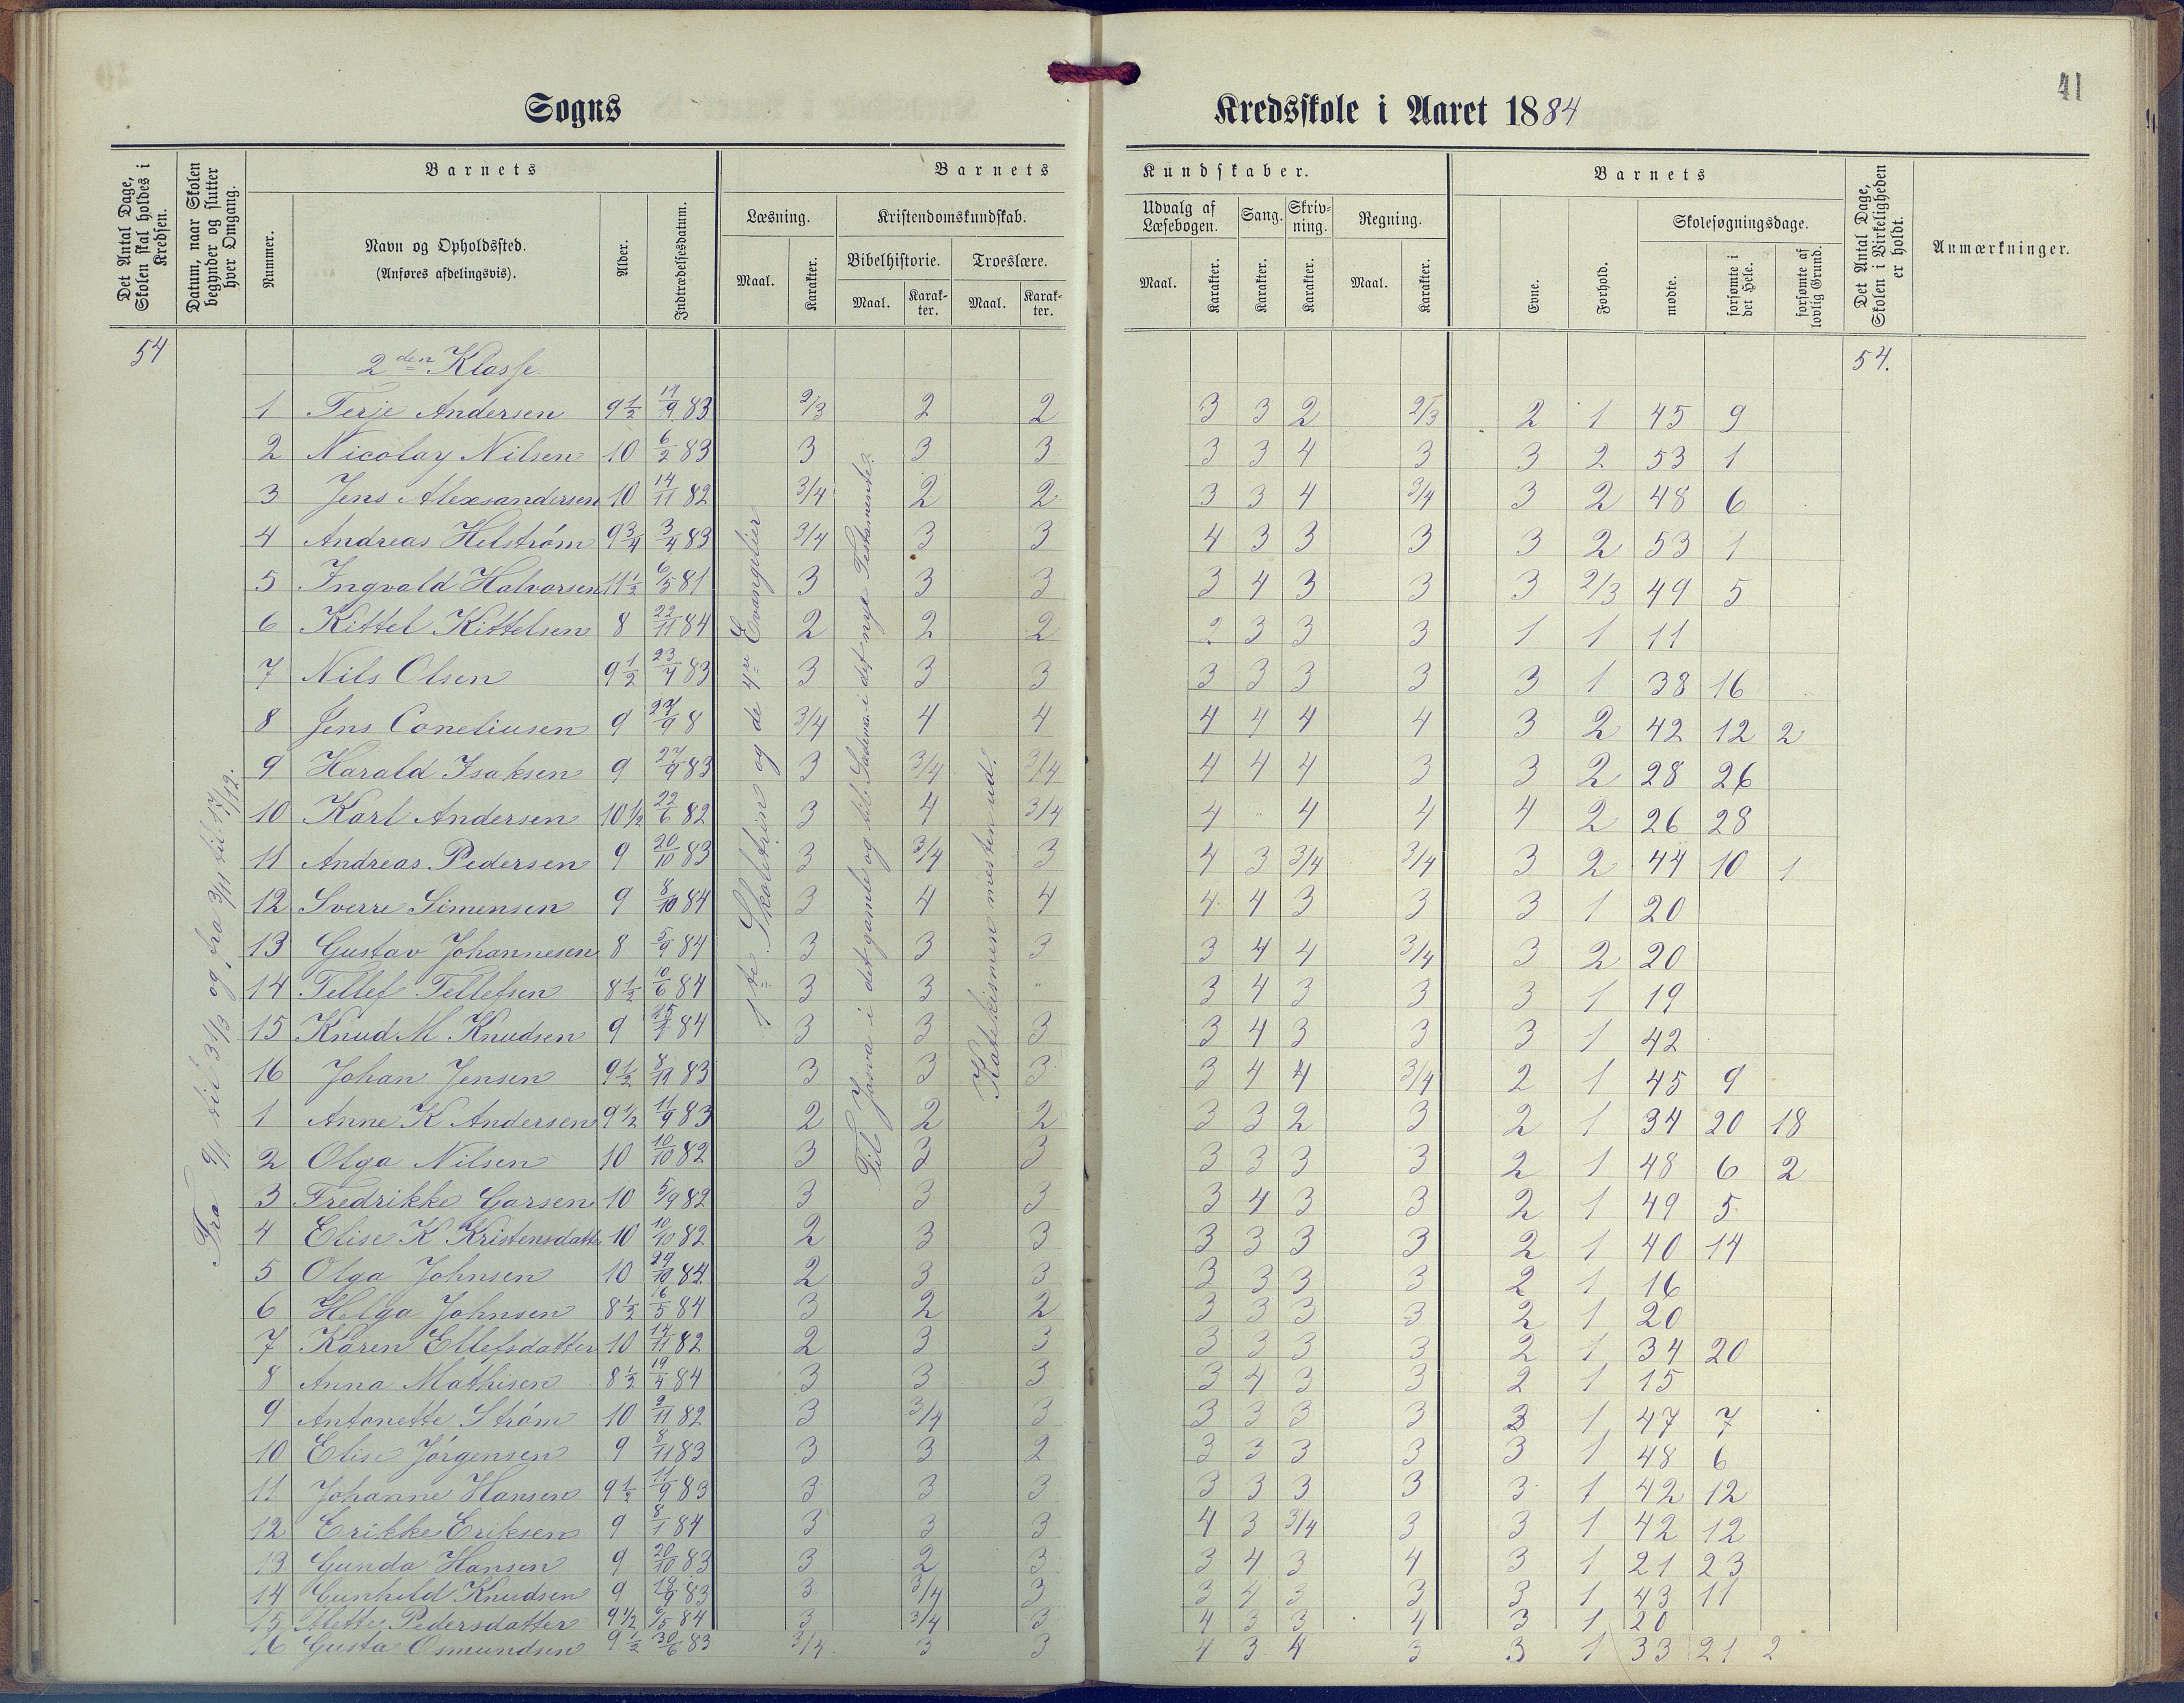 41
Sogns Kredsskole i Aaret 1884
Det Antal Dage, Skolen skal holdes i Kredsen.
Datum, naar Skolen begynder og slutter hver Omgang.
Barnets
Nummer.
Navn og Opholdssted.
(Anføres afdelingsvis).
Alder.
Indtrædelsesdatum.
Barnets Kundskaber.
Læsning.
Maal. Karakter.
Kristendomskundskab.
Bibelhistorie. Troeslære.
Maal. Karakter. Maal. Karakter.
Udvalg af Læsebogen. Sang. Skrivning. Regning.
Maal. Karakter. Karakter. Karakter. Maal. Karakter.
Barnets
Evne. Forhold.
Skolesøgningsdage.
mødte. forsømte i det Hele. forsømte af lovlig Grund.
Det Antal Dage, Skolen i Virkeligheden er holdt.
Anmærkninger.
54 2den Klasse 54.
Fra 9/1 til 31/3 og fra 3/11 til 17/12.
1te Skoletrin og de 4re Evangelier
Til Josva i det gamle og til i det nye Testamente.
Katekismen mesten ud.
1 Terje Andersen 9½ 83 2/3 2 2 3 3 2 2/3 2 1 45 9
2 Nicolay Nilsen 10 6/2 83 3 3 3 3 3 4 3 3 2 53 1
3 Jens Alexsandersen 10 14/11 82 3/4 2 2 3 3 4 3/4 3 2 48 6
4 Andreas Helstrøm 9¾ 3/4 83 3/4 3 3 4 3 3 3 3 2 53 1
5 Ingvald Halvorsen 11½ 6/5 81 3 3 3 3 4 3 3 3 2/3 49 5
6 Kittel Kittelsen 8 22/11 84 2 2 2 2 3 3 3 1 1 11
7 Nils Olsen 9½ 23/4 83 3 3 3 3 3 3 3 3 1 38 16
8 Jens Coneliusen 9 27/9 8 3/4 4 4 4 4 4 4 3 2 42 12 2
9 Harald Isaksen 9 27/9 83 3 3/4 3/4 4 4 4 3 3 2 28 26
10 Karl Andersen 10½ 22/6 82 3 4 3/4 4 " 4 4 4 2 26 28
11 Andreas Pedersen 9 20/10 83 3 3/4 3 4 3 3/4 3/4 3 2 44 10 1
12 Sverre Simensen 9 8/10 84 3 4 4 4 4 3 3 3 1 20
13 Gustav Johannesen 8 5/9 84 3 3 3 3 4 4 3/4 3 2 20
14 Tellef Tellefsen 8½ 10/6 84 3 3 " 3 4 3 3 3 1 19
15 Knud M Knudsen 9 84 3 3 3 3 4 3 3 3 1 42
16 Johan Jensen 9½ 83 3 3 3 3 4 4 3/4 2 1 45 9
1 Anne K Andersen 9½ 11/9 83 2 2 2 3 3 2 3 2 1 34 20 18
2 Olga Nilsen 10 10/10 82 3 3 3 3 3 3 3 2 1 48 6 2
3 Fredrikke Garsen 10 5/9 82 3 3 3 3 4 3 3 2 1 49 5
4 Elise K Kristensdatter 10 10/10 82 2 3 3 3 3 3 3 2 1 40 14
5 Olga Johnsen 10 29/10 84 2 3 3 3 3 3 3 2 1 16
6 Helga Johnsen 8½ 16/5 84 3 2 2 3 3 3 3 2 1 20
7 Karen Ellefsdatter 10 14/11 82 2 3 3 3 3 3 3 2 1 34 20
8 Anna Mathisen 8½ 19/4 84 3 3 3 3 4 3 3 2 1 15
9 Antonette Strøm 10 9/11 82 3 3/4 3 3 3 3 3 3 1 47 7
10 Elise Jørgensen 9 8/11 83 3 3 2 3 3 3 3 3 1 48 6
11 Johanne Hansen 9½ 11/9 83 3 3 3 3 3 3 3 3 1 42 12
12 Erikke Eriksen 9 8/1 84 3 3 3 4 3 3/4 3 3 1 42 12
13 Gunda Hansen 9 20/10 83 3 2 3 3 4 3 4 3 1 21 23
14 Gunhild Knudsen 9 18/9 83 3 3/4 3 3 4 3 3 3 1 43 11
15 Mette Pedersdatter 9½ 6/5 84 3 3/4 3 4 3 3 4 3 1 20
16 Gusta Osmundsen 9½ 30/6 83 3/4 3 3 4 3 4 3 3 1 33 21 2